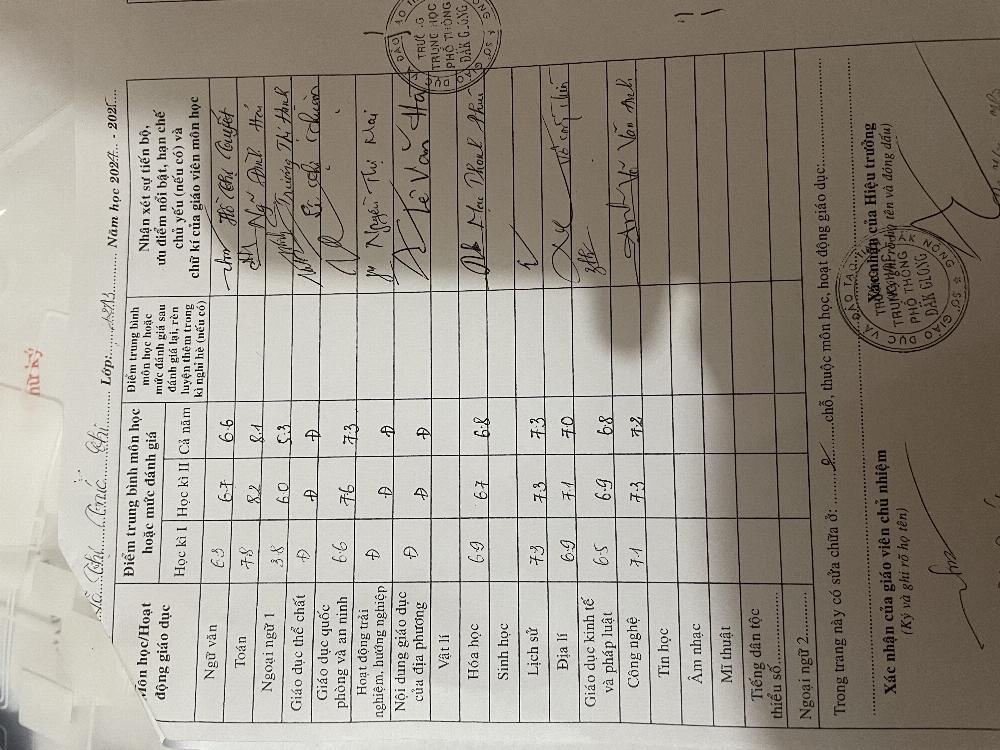 Thị Trúc Chi Lớp: 12A3 Năm học 2024 - 2025
Môn học/Hoạt động giáo dục
Điểm trung bình môn học hoặc mức đánh giá
Học kì I Học kì II Cả năm
Điểm trung bình môn học hoặc mức đánh giá sau đánh giá lại, rèn luyện thêm trong kì nghỉ hè (nếu có)
Nhận xét sự tiến bộ, ưu điểm nổi bật, hạn chế chủ yếu (nếu có) và chữ kí của giáo viên môn học
Ngữ văn 6.3 6.7 6.6 Hồ Thị Tuyết
Toán 7.8 8.2 8.1
Ngoại ngữ 1 3.8 6.0 5.3 Trương Thị Hạnh
Giáo dục thể chất Đ Đ Đ
Giáo dục quốc phòng và an ninh 6.6 7.6 7.3
Hoạt động trải nghiệm, hướng nghiệp Đ Đ Đ Nguyễn Thị Mai
Nội dung giáo dục của địa phương Đ Đ Đ Lê Văn Hà
Vật lí
Hóa học 6.9 6.7 6.8
Sinh học
Lịch sử 7.3 7.3 7.3
Địa lí 6.9 7.1 7.0
Giáo dục kinh tế và pháp luật 6.5 6.9 6.8
Công nghệ 7.1 7.3 7.2 Võ Văn Anh
Tin học
Âm nhạc
Mĩ thuật
Tiếng dân tộc thiểu số
Ngoại ngữ 2
Trong trang này có sửa chữa ở: chỗ, thuộc môn học, hoạt động giáo dục
Xác nhận của giáo viên chủ nhiệm
(Ký và ghi rõ họ tên)
Xác nhận của Hiệu trưởng
(Ký, ghi rõ họ tên và đóng dấu)
SỞ GIÁO DỤC VÀ ĐÀO TẠO
ĐẮK NÔNG
TRƯỜNG
TRUNG HỌC
PHỔ THÔNG
ĐẮK GLONG
TRƯỜNG
TRUNG HỌC
PHỔ THÔNG
ĐẮK GLONG